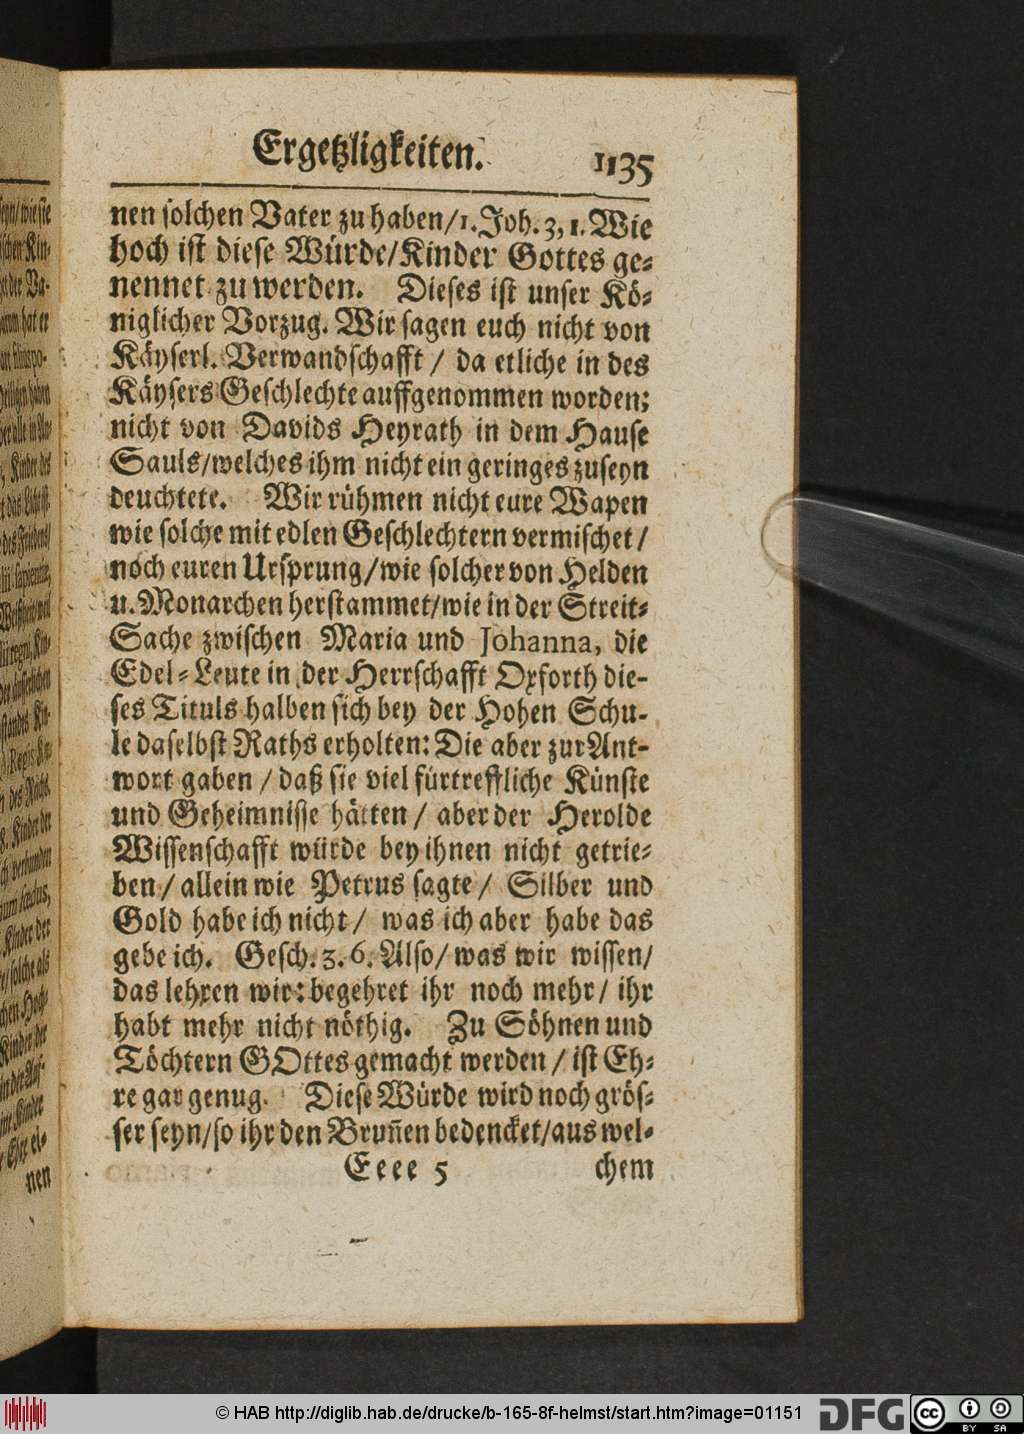 Ergetzligkeiten. 1135
nen solchen Vater zu haben/1. Joh. 3, 1. Wie
hoch ist diese Würde/Kinder Gottes ge-
nennet zu werden. Dieses ist unser Kö-
niglicher Vorzug. Wir sagen euch nicht von
Käyserl. Verwandschafft / da etliche in des
Käysers Geschlechte auffgenommen worden;
nicht von Davids Heyrath in dem Hause
Sauls/welches ihm nicht ein geringes zuseyn
deuchtete. Wir rühmen nicht eure Wapen
wie solche mit edlen Geschlechtern vermischet /
noch euren Ursprung/wie solcher von Helden
u. Monarchen herstammet/wie in der Streit-
Sache zwischen Maria und Johanna, die
Edel-Leute in der Herrschafft Oxforth die-
ses Tituls halben sich bey der Hohen Schu-
le daselbst Raths erholten: Die aber zur Ant-
wort gaben / daß sie viel fürtreffliche Künste
und Geheimnisse hätten / aber der Herolde
Wissenschafft würde bey ihnen nicht getrie-
ben / allein wie Petrus sagte / Silber und
Gold habe ich nicht / was ich aber habe das
gebe ich. Gesch. 3. 6. Also/ was wir wissen/
das lehren wir: begehret ihr noch mehr/ ihr
habt mehr nicht nöthig. Zu Söhnen und
Töchtern GOttes gemacht werden / ist Eh-
re gar genug. Diese Würde wird noch grös-
ser seyn/so ihr den Brun̄en bedencket/aus wel-
Eeee 5 chem
nen
© HAB http://diglib.hab.de/drucke/b-165-8f-helmst/start.htm?image=01151
DFG
cc BY SA